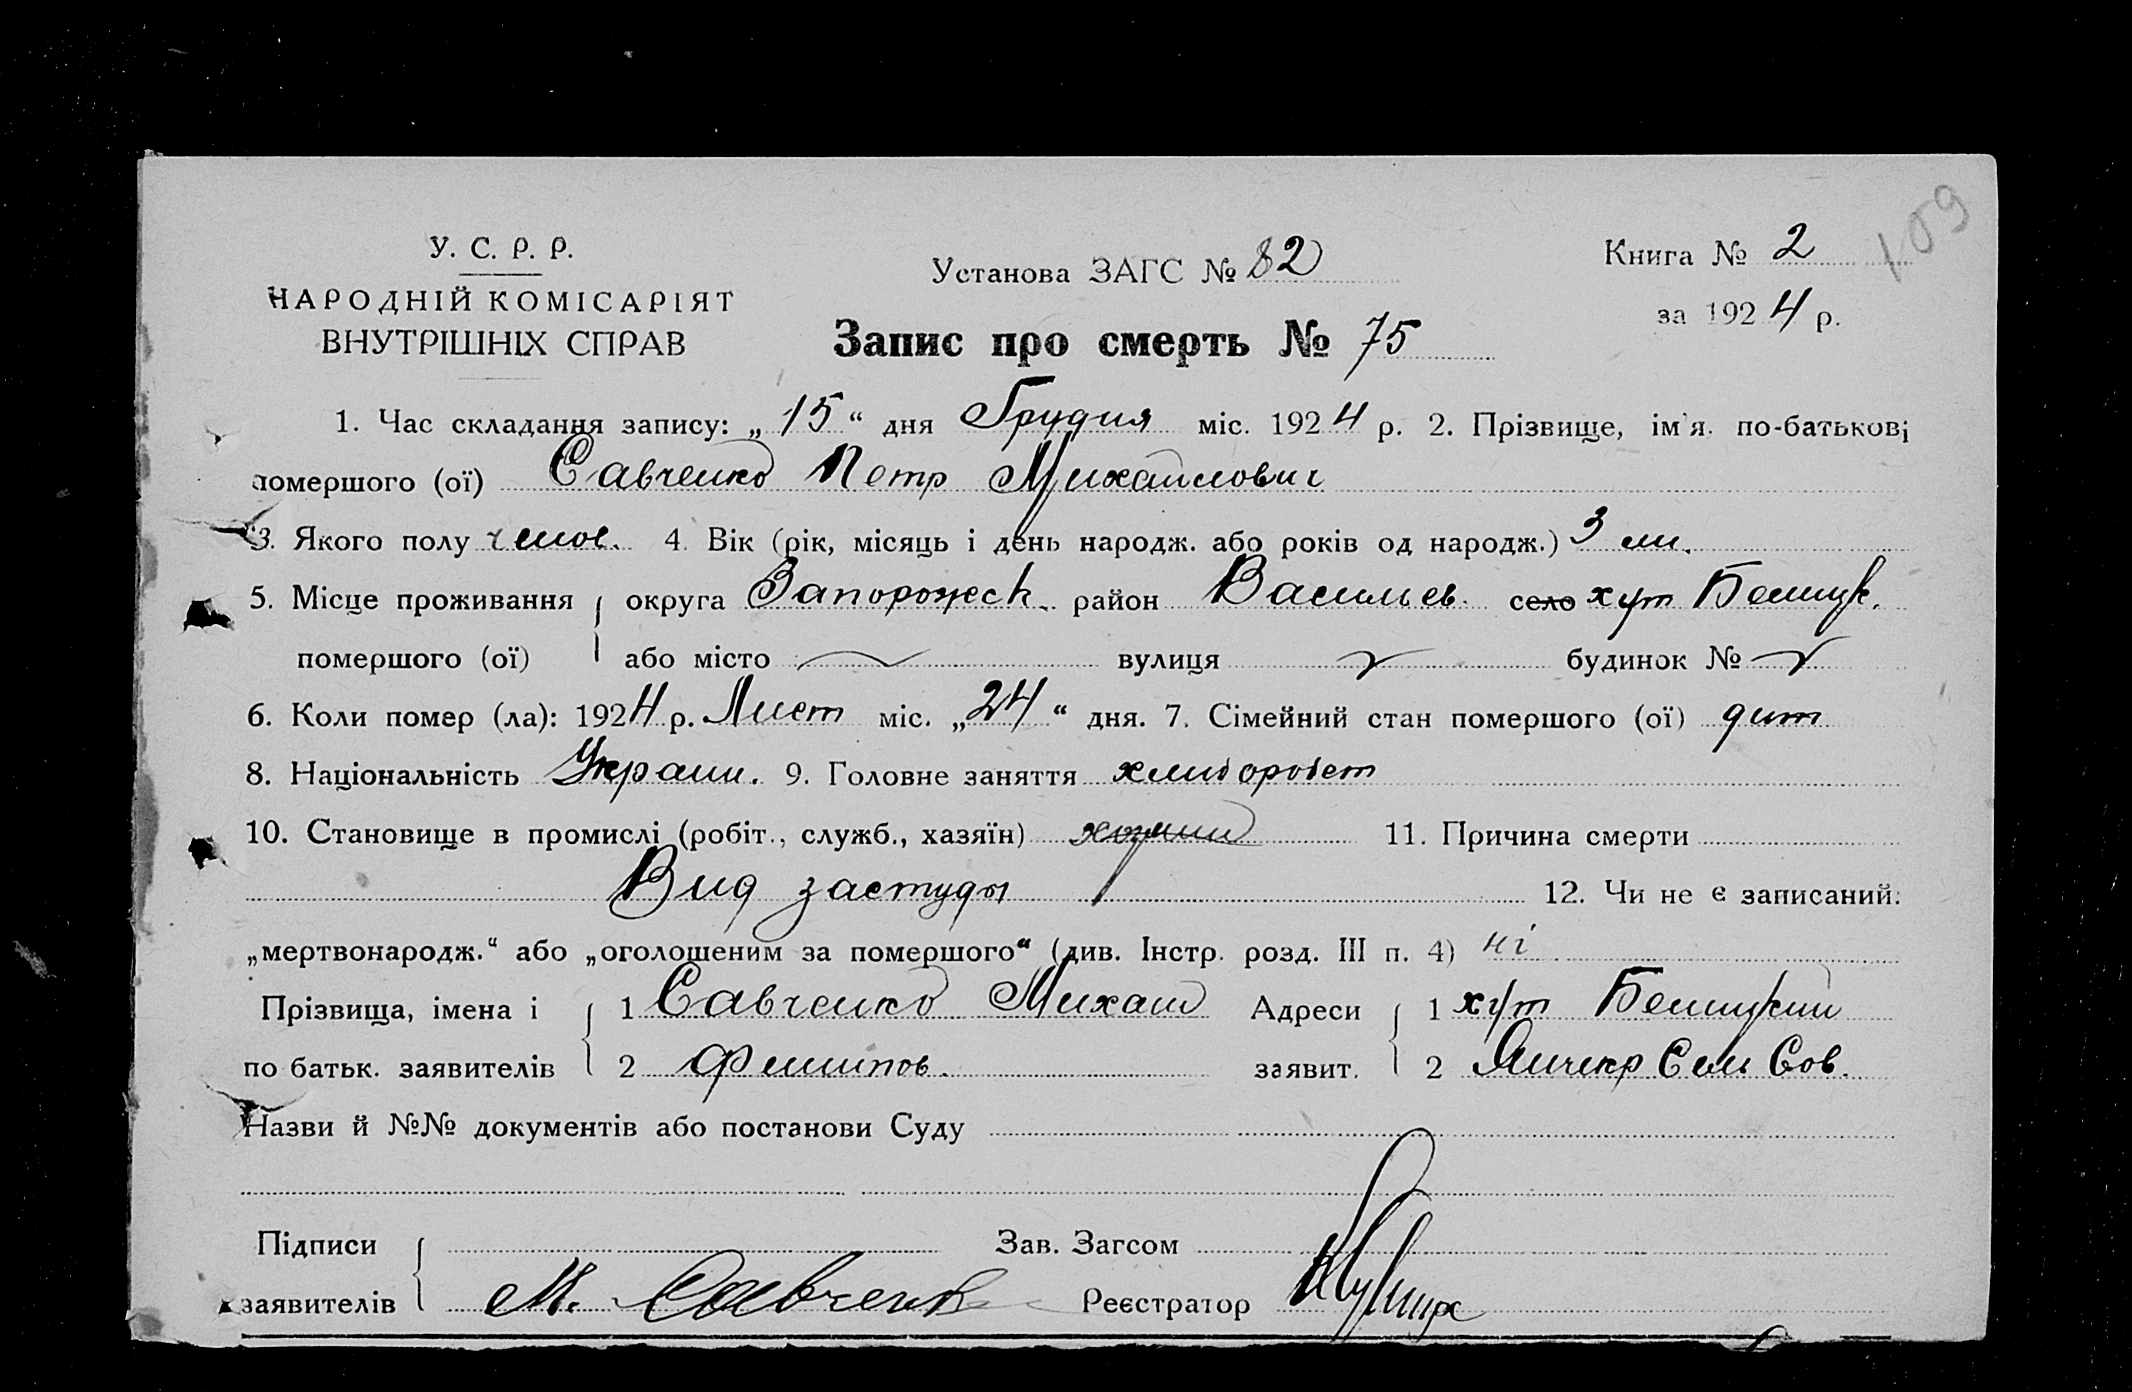 109
У. С. Р. Р.
НАРОДНІЙ КОМІСАРІЯТ
ВНУТРІШНІХ СПРАВ
Установа ЗАГС № 82
Книга № 2
за 1924 р.
Запис про смерть № 75
1. Час складання запису: „15“ дня Грудня міс. 1924 р. 2. Прізвище, ім'я, по-батькові
помершого (ої) Савченко Петр Михайлович
3. Якого полу челов. 4. Вік (рік, місяць і день народж. або років од народж.) 3 м.
5. Місце проживання округа Запорожск. район Васильев. село хут
помершого (ої) або місто вулиця будинок №
6. Коли помер (ла): 1924 р. Лист міс. „24“ дня. 7. Сімейний стан помершого (ої) дит
8. Національність Украин. 9. Головне заняття хлибороб
10. Становище в промислі (робіт., служб., хазяїн) хозяин 11. Причина смерти
Вид застуды 12. Чи не є записаний:
„мертвонародж.“ або „оголошеним за помершого“ (див. Інстр. розд. III п. 4) ні
Прізвища, імена і 1 Савченко Михаил Адреси 1 хут
по батьк. заявителів 2 Филипов. заявит. 2 Сель Сов.
Назви й №№ документів або постанови Суду
Підписи Зав. Загсом
заявителів М. Савченко Реєстратор